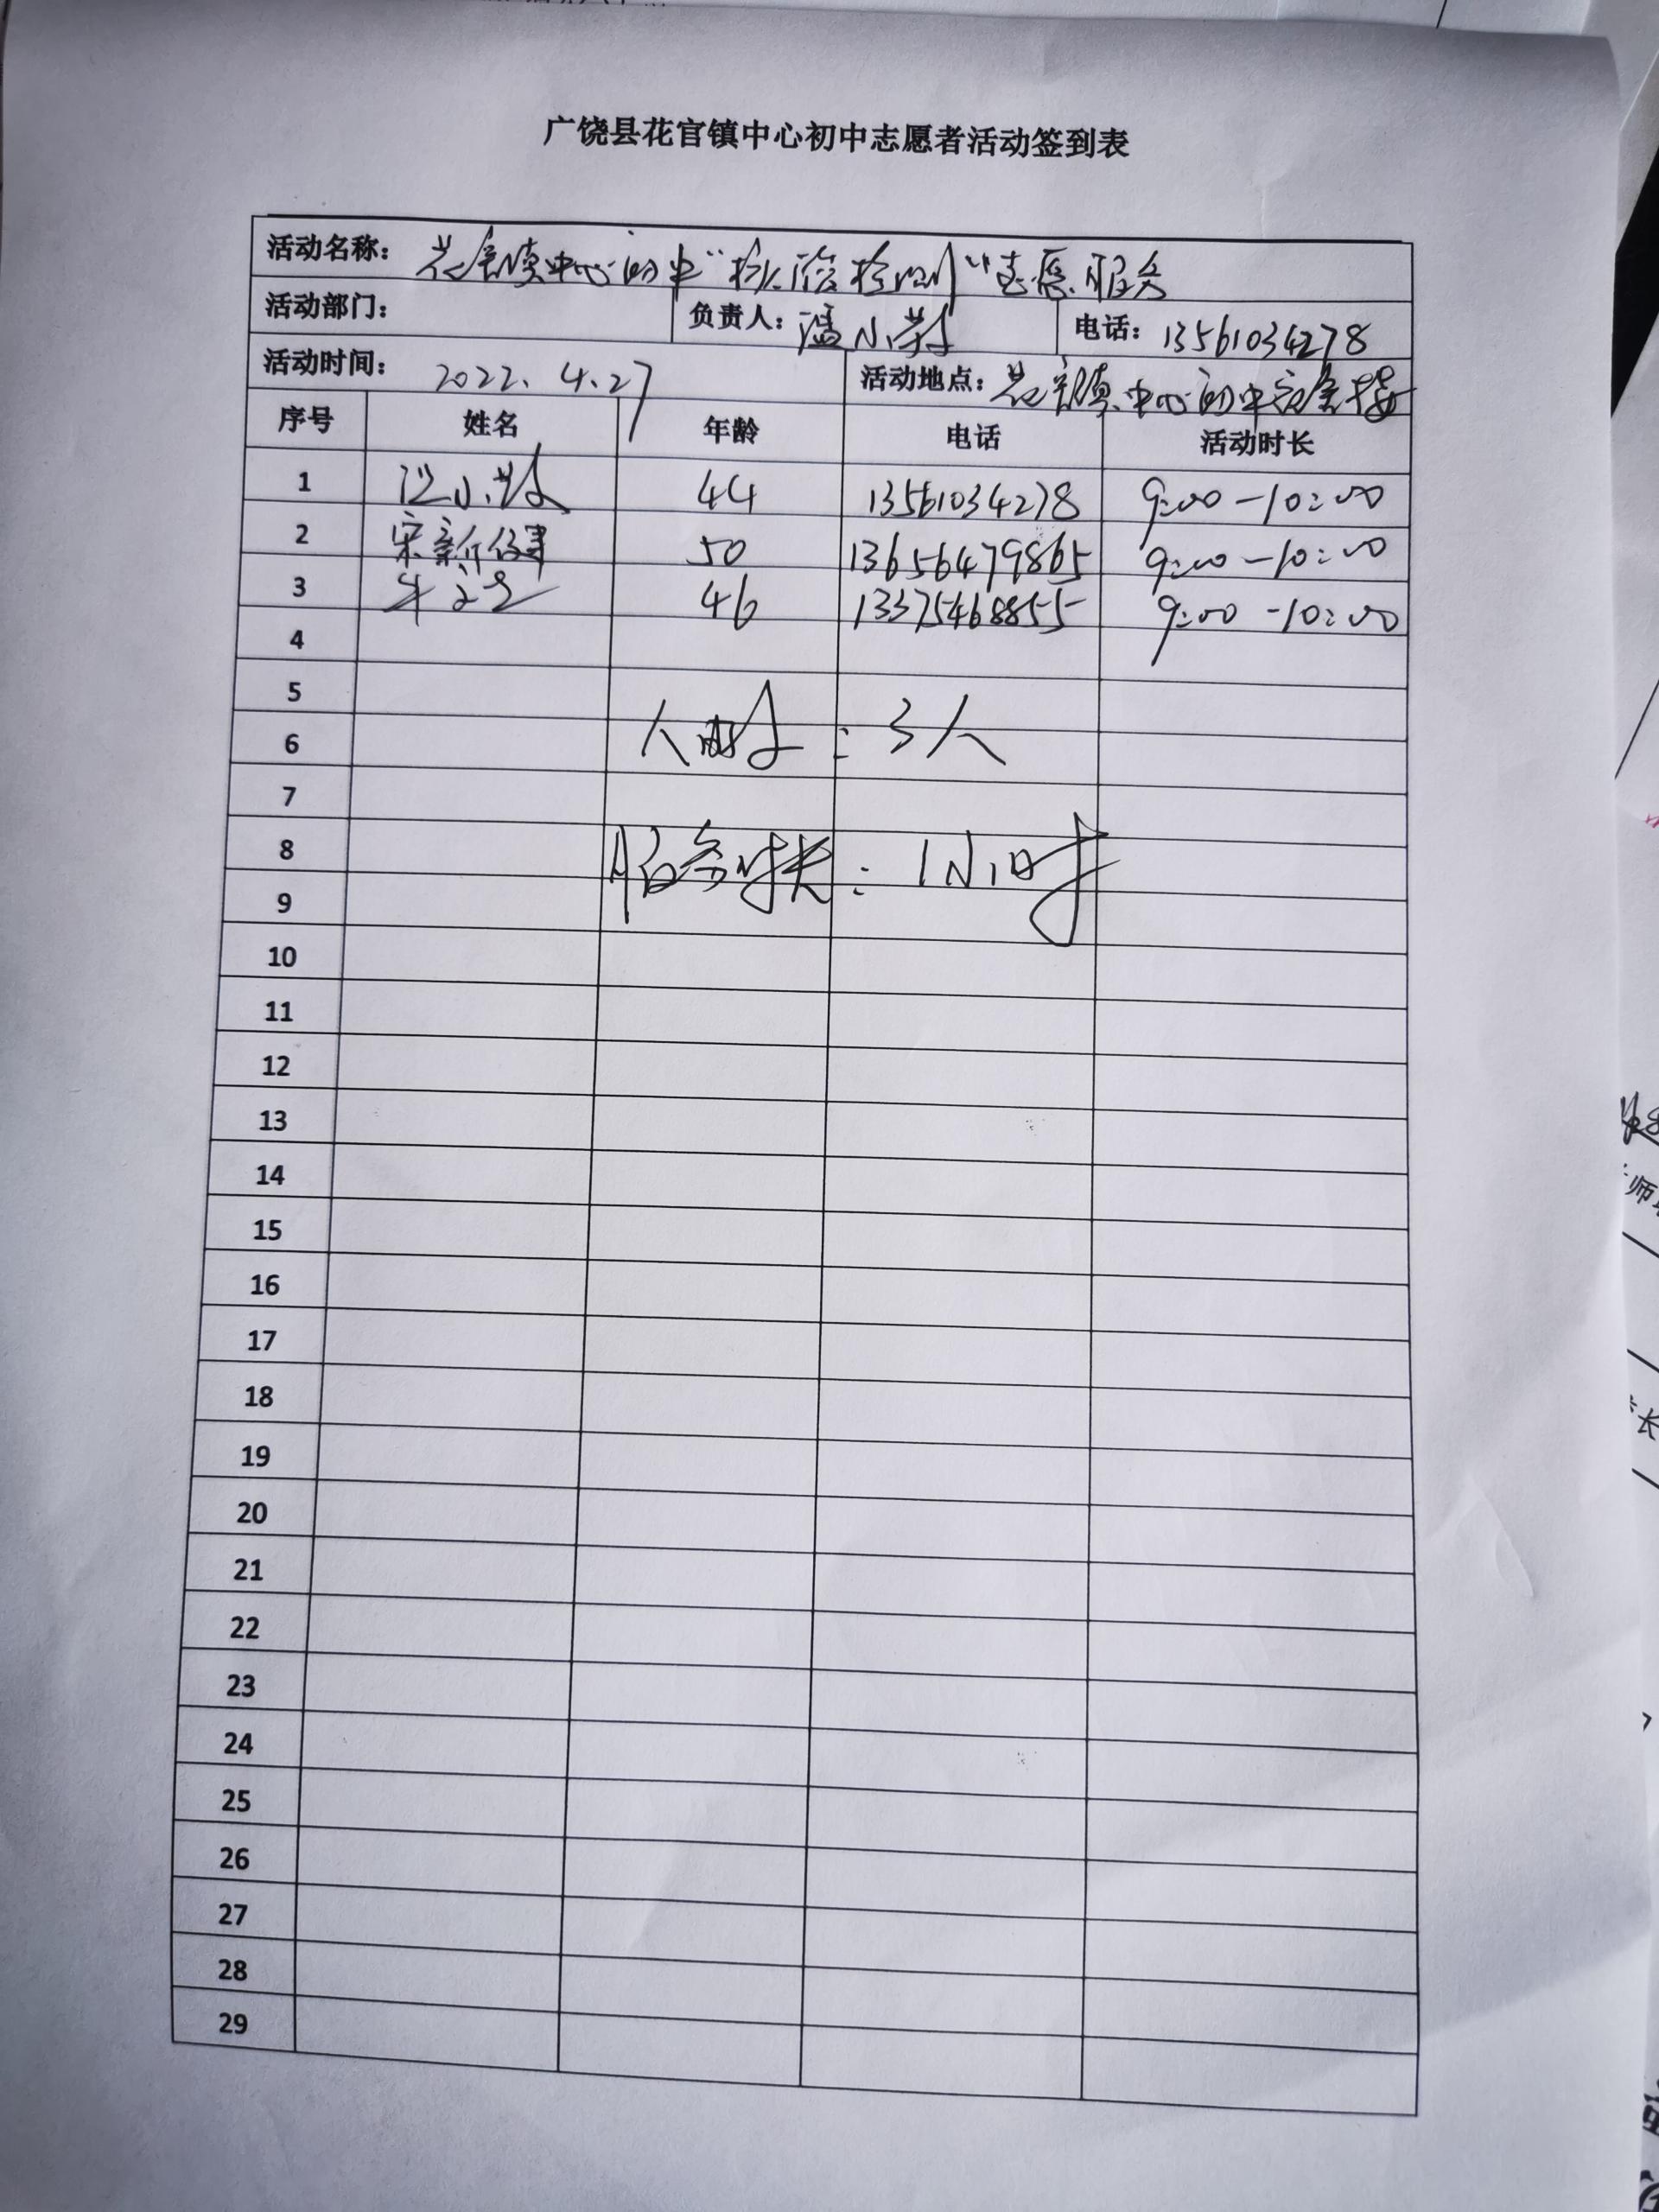 广饶县花官镇中心初中志愿者活动签到表
活动名称: 花官镇中心初中"核酸检测"志愿服务
活动部门: 负责人: 电话: 13561034278
活动时间: 2022.4.27 活动地点: 花官镇中心初中宿舍楼
序号 姓名 年龄 电话 活动时长
1 44 13561034278 9:00-10:00
2 宋新健 50 13656479865 9:00-10:00
3 46 13375468855 9:00-10:00
4
5
人数:3人
6
7
8
服务时长:1小时
9
10
11
12
13
14
15
16
17
18
19
20
21
22
23
24
25
26
27
28
29